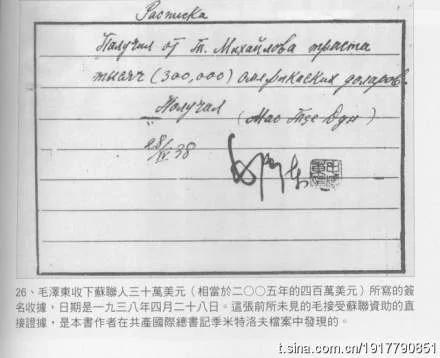 Расписка
Получил от т. Михайлова триста
тысяч (300,000) американских доларов.
Получил (Мао Тзе Дун)
28/IV 38
26、毛澤東收下蘇聯人三十萬美元（相當於二〇〇五年的四百萬美元）所寫的簽
名收據，日期是一九三八年四月二十八日。這張前所未見的毛接受蘇聯資助的直
接證據，是本書作者在共產國際總書記季米特洛夫檔案中發現的。
t.sina.com.cn/1917790851